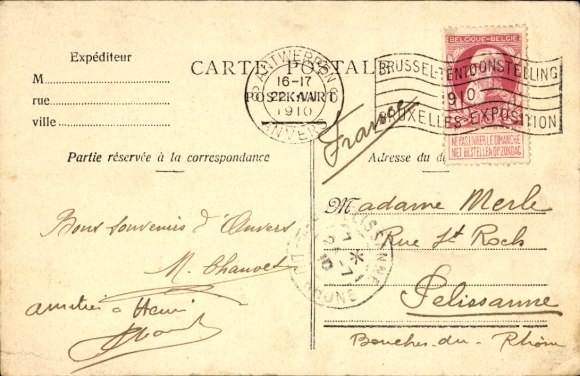 Expéditeur
M
rue
ville
CARTE POSTALE
POSTKAART
Partie réservée à la correspondance
Adresse du
ANTWERPEN
16-17
22
1910
ANVERS
BRUSSEL-TENTOONSTELLING
1910
BRUXELLES-EXPOSITION
BELGIQUE-BELGIË
NE PAS LIVRER LE DIMANCHE
NIET BESTELLEN OP ZONDAG
France
Bons souvenirs d'Anvers
M. Chauvet
amitiés à Henri
Madame Merle
Rue St Roch
Pelissanne
Bouches-du-Rhône